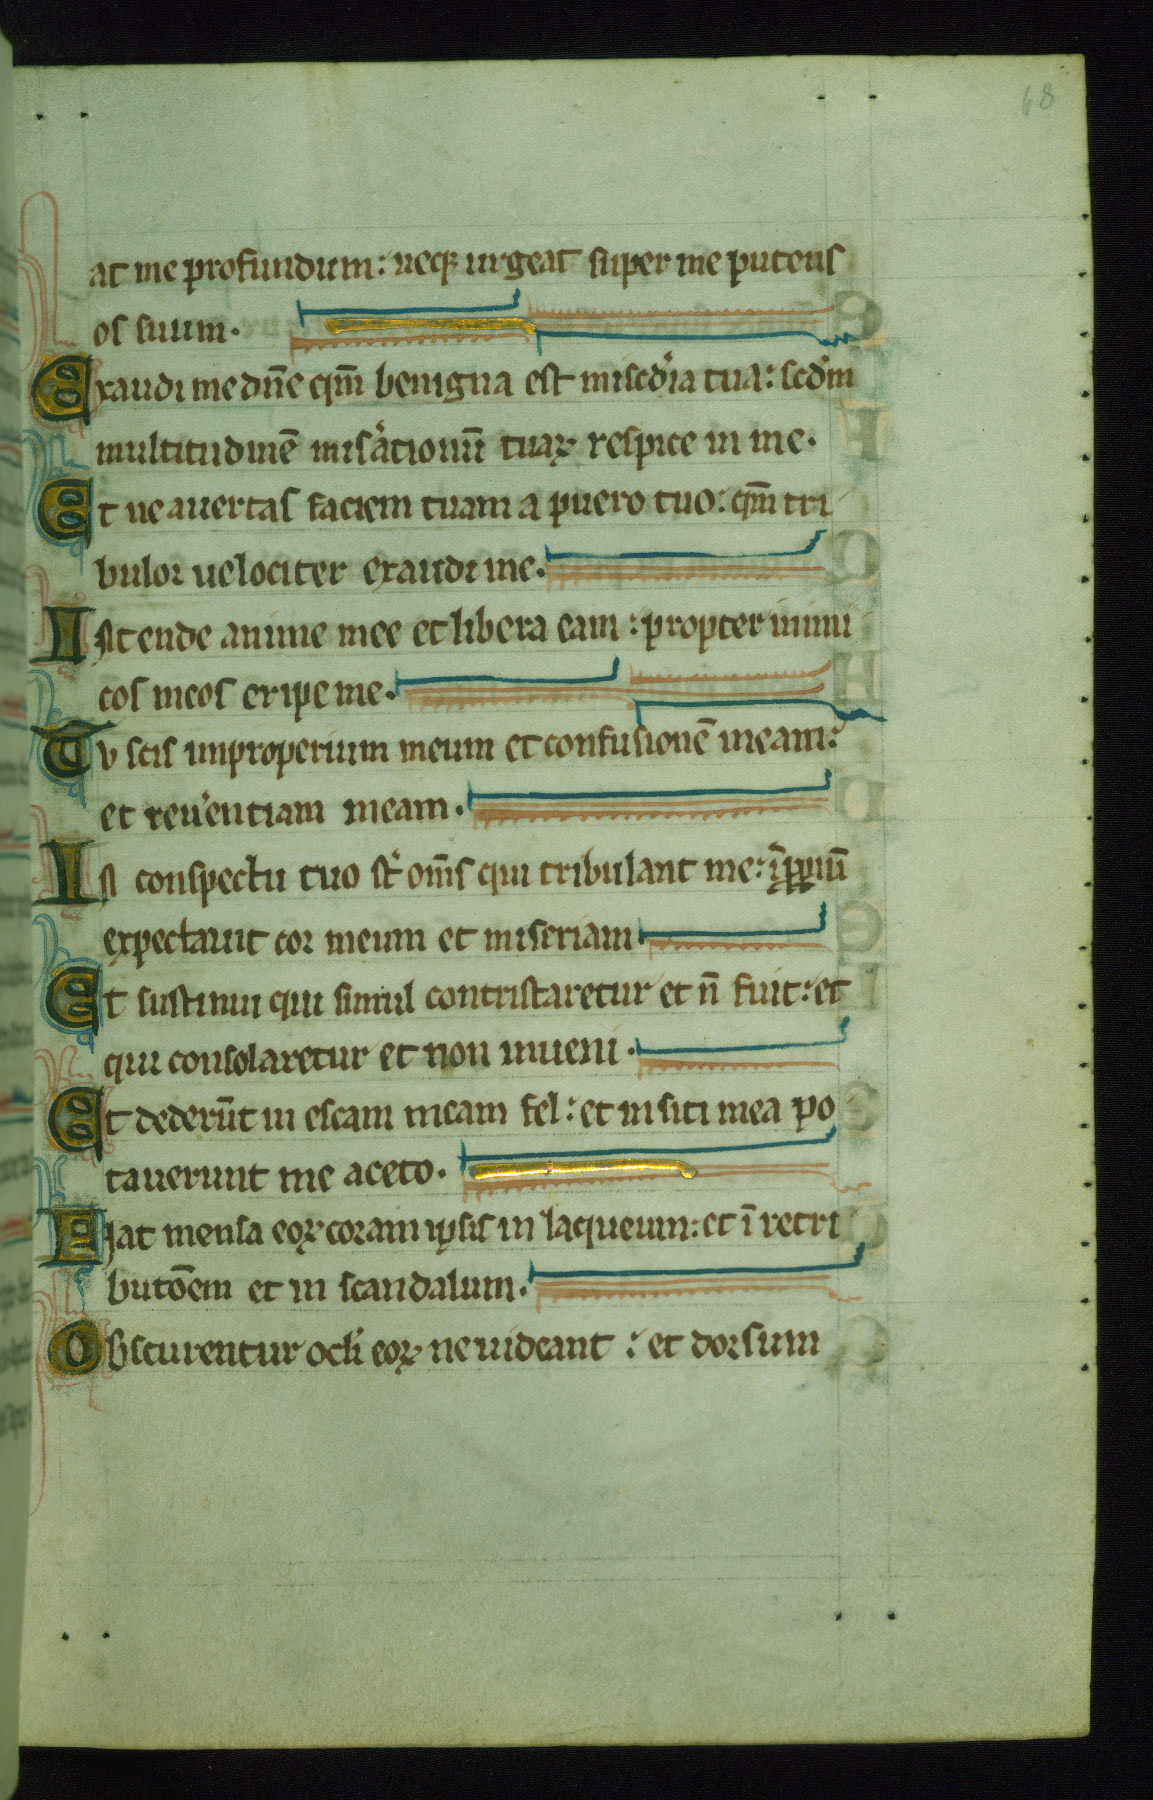 68
at me profundum: neqꝫ urgeat super me puteus
os suum.
Exaudi me dn̄e qm̄ benigna est misċdia tua: scd̓m
multitudinē mis̓ationū tuaꝝ respice in me.
Et ne auertas faciem tuam a puero tuo: qm̄ tri
bulor uelociter exaudi me.
Intende anime mee et libera eam: propter inimi
cos meos eripe me.
Tu scis improperium meum et confusionē meam:
et reu̓entiam meam.
In conspectu tuo st̓ om̄s qui tribulant me:
expectauit cor meum et miseriam
Et sustinui qui simul contristaretur et n̄ fuit: et
qui consolaretur et non inueni.
Et dederūt in escam meam fel: et in siti mea po
tauerunt me aceto.
Fiat mensa eoꝝ coram ipsis in laqueum: et ī retri
butōem et in scandalum.
Obscurentur ocli̓ eoꝝ ne uideant: et dorsum